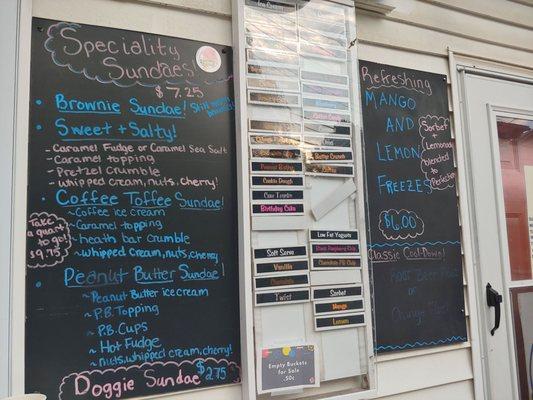 Speciality
Sundaes!
$7.25
Brownie Sundae!
Sweet + Salty!
- Caramel Fudge or Caramel Sea Salt
- Caramel topping
- Pretzel Crumble
- whipped cream, nuts, cherry!
Coffee Toffee Sundae!
~ Coffee ice cream
~ Caramel topping
~ heath bar crumble
~ whipped cream, nuts, cherry
Take
a quart
to go!
$9.75
Peanut Butter Sundae!
~ Peanut Butter ice cream
~ P.B. Topping
~ P.B. Cups
~ Hot Fudge
~ nuts, whipped cream, cherry!
Doggie Sundae
$2.75
Peanut Butter
Cookie Dough
Birthday Cake
Butter Crunch
Soft Serve
Vanilla
Chocolate
Twist
Low Fat Yogurt
Black Raspberry Chip
Chocolate PB Cup
Sorbet
Mango
Lemon
Empty Buckets
for Sale .50¢
Refreshing
MANGO
AND
LEMON
FREEZES
Sorbet
+
Lemonade
blended to
Perfection
$6.00
Classic Cool-Down!
Root Beer Float
or